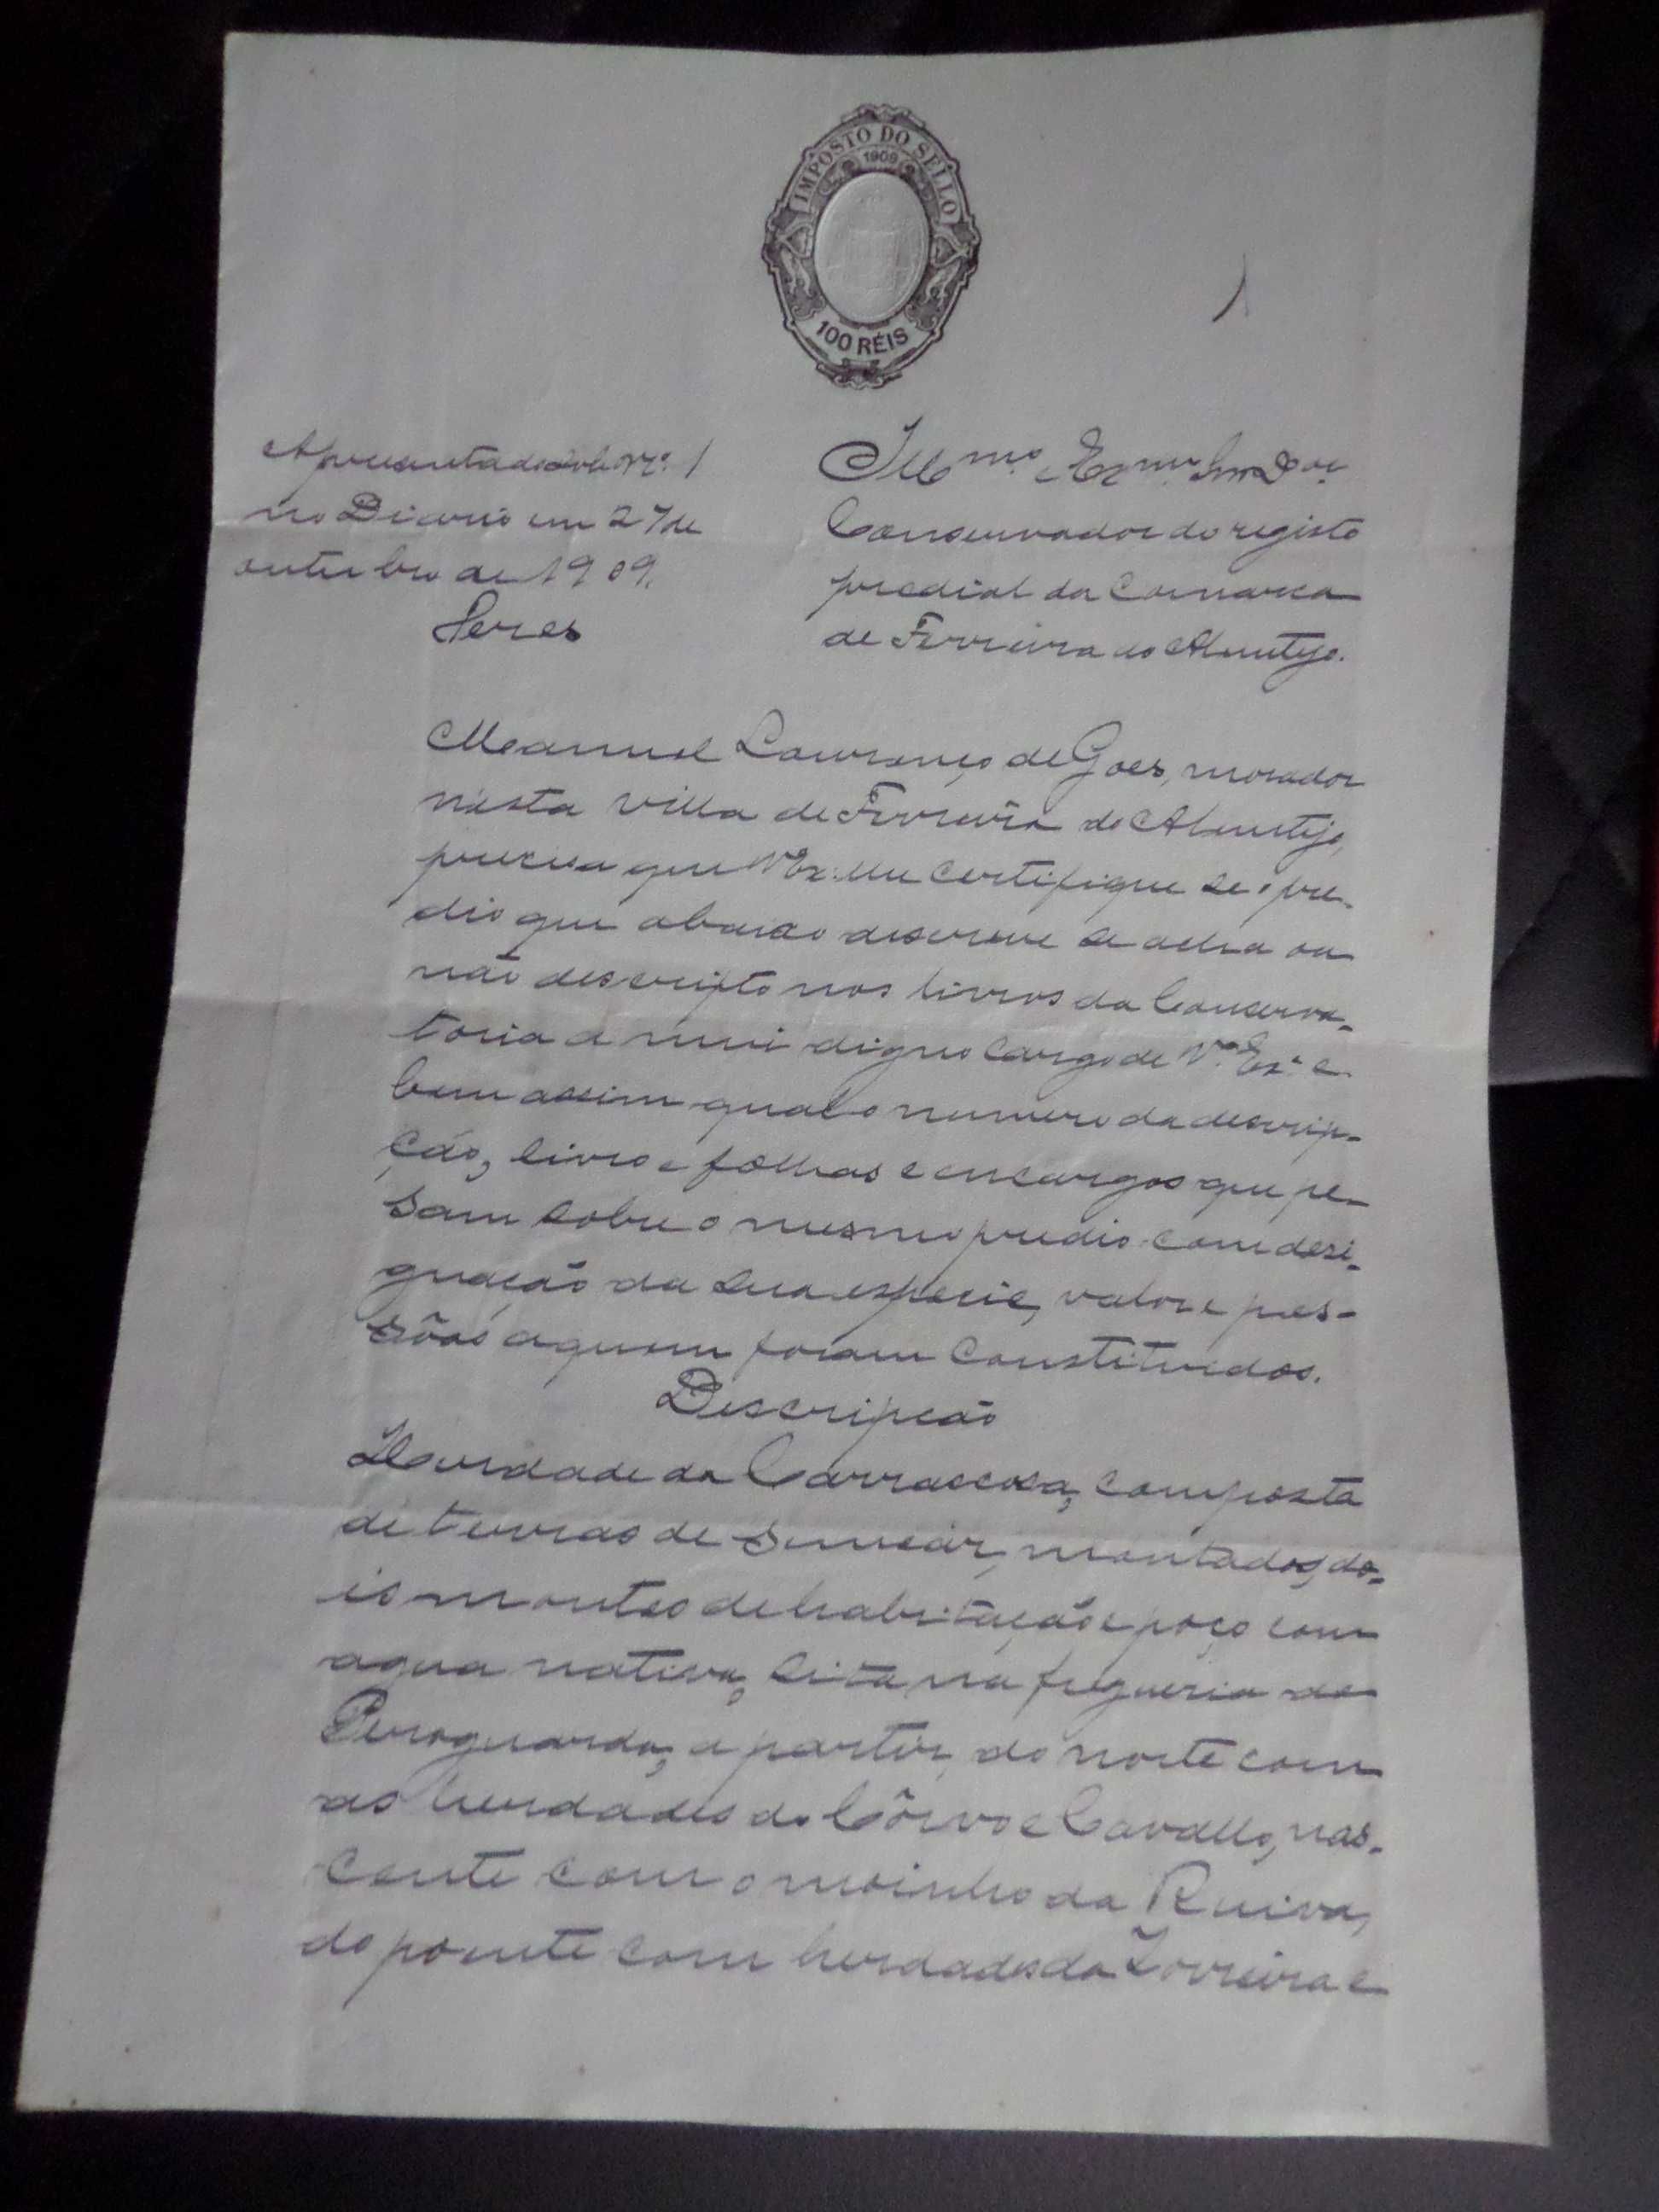 IMPOSTO DO SELLO
1909
100 RÉIS
1
Apresentado sob nº. 1
no Diario em 27 de
outubro de 1909.
Peres
Illmo. e Exmo. Snr. Dor.
Conservador do registo
predial da Comarca
de Ferreira do Alemtejo.
Manuel Lourenço de Goes, morador
nésta villa de Ferreira do Alemtejo,
precisa que Vª Exª lhe certifique se o pre-
dio que abaixo descreve se acha ou
não descripto nos livros da Conserva-
toria a mui digno cargo de Vª. Exª e
bem assim qual o numero da descrip-
ção, livro e folhas e encargos que pe-
sam sobre o mesmo predio com desi-
gnação da sua especie, valor e pes-
sôas a quem foram constituidos.
Descripção
Herdade da Carrascosa, composta
de terras de semear, montados, do-
is montes de habitação e poço com
agua nativa, sita na freguesia de
Peroguarda, a partir do norte com
as herdades do Côrvo e Cavallo, nas-
cente com o moinho da Ruiva,
do poente com herdades da Zorreira e